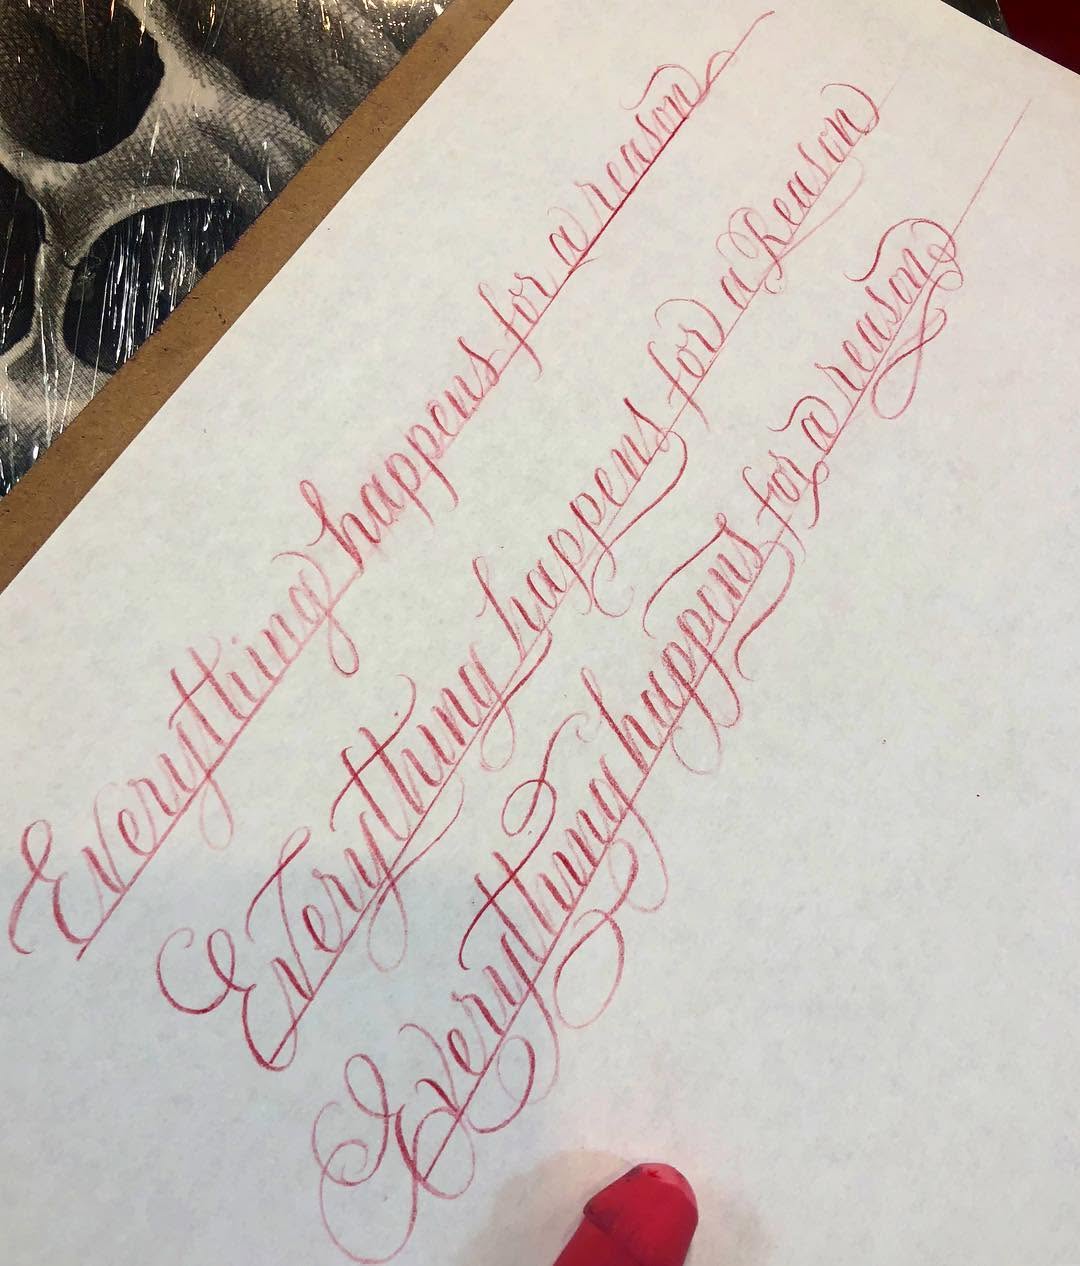 Everything happens for a reason
Everything happens for a Reason
Everything happens for a reason